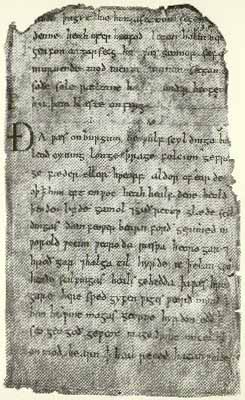 denne heah ofer heafod leton holm ber
geafon on garsecg him wæs geomor sefa
murnende mod men ne cunnon secgan
soðe sele rædenne under heofen
hwa þæm hlæste onfeng
ÐA wæs on burgum beowulf scyldinga leof
leod cyning longe þrage folcum gefræ
ge fæder ellor hwearf aldor of earde
oþ þ him eft onwoc heah healfdene heold
þenden lifde gamol ⁊ guð reouw glæde scyl
dingas ðæm feower bearn forð gerimed in
worold wocun weoroda ræswa heoro gar ⁊
hroð gar ⁊ halga til hyrde ic þ elan cwen
heaðo scilfingas heals gebedda þa wæs hroð
gare here sped gyfen wiges weorð mynd
þ him his wine magas georne hyrdon oðð þ
seo geogoð geweox mago driht micel him
on mod be arn þ heal reced hatan wolde